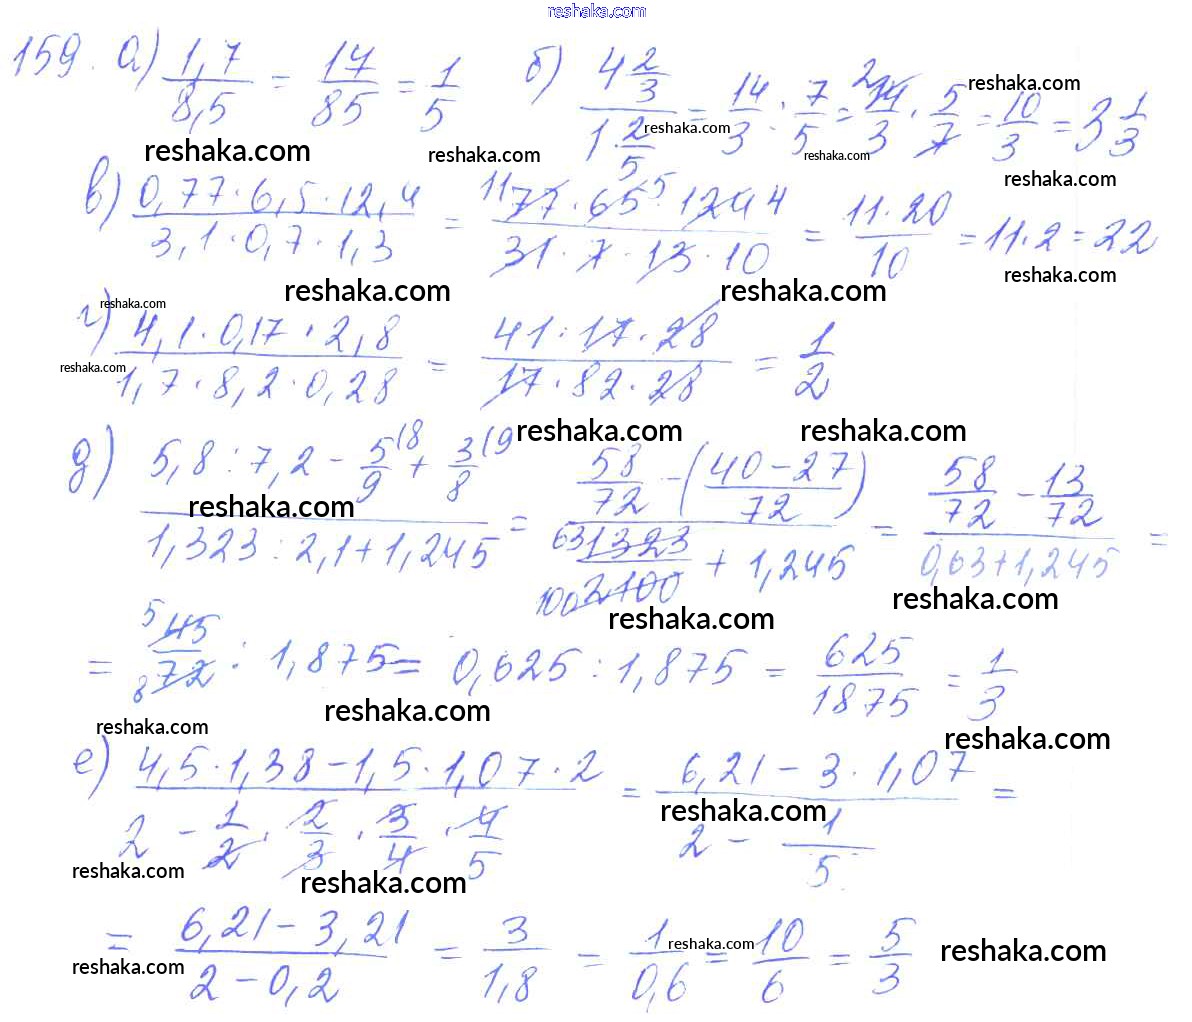 reshaka.com
159. а) 1,7/8,5 = 17/85 = 1/5 б) 4 2/3 / 1 2/5 = 14/3 : 7/5 = 2 14/3 · 5/7 = 10/3 = 3 1/3
reshaka.com
reshaka.com reshaka.com reshaka.com reshaka.com
reshaka.com
в) 0,77·6,5·12,4 / 3,1·0,7·1,3 = 11 77·65 5·124 4 / 31·7·13·10 = 11·20/10 = 11·2 = 22
reshaka.com
reshaka.com reshaka.com
reshaka.com
г) 4,1·0,17·2,8 / 1,7·8,2·0,28 = 41·17·28 / 17·82·28 = 1/2
reshaka.com
reshaka.com reshaka.com
д) 5,8 : 7,2 - 5/9 (8 + 3/8 (9 / 1,323 : 2,1 + 1,245 = 58/72 - (40-27/72) / 63 1323/100 2100 + 1,245 = 58/72 - 13/72 / 0,63+1,245 =
reshaka.com
reshaka.com reshaka.com
= 5 45/8 72 : 1,875 = 0,625 : 1,875 = 625/1875 = 1/3
reshaka.com reshaka.com reshaka.com
е) 4,5·1,38-1,5·1,07·2 / 2 - 1/2 · 2/3 · 3/4 · 4/5 = 6,21-3·1,07 / 2 - 1/5 =
reshaka.com
reshaka.com reshaka.com
= 6,21-3,21 / 2-0,2 = 3/1,8 = 1/0,6 = 10/6 = 5/3
reshaka.com reshaka.com reshaka.com